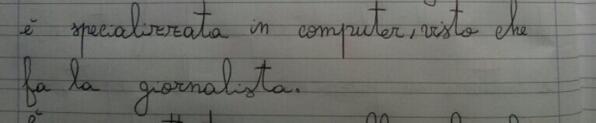 è specializzata in computer, visto che
fa la giornalista.